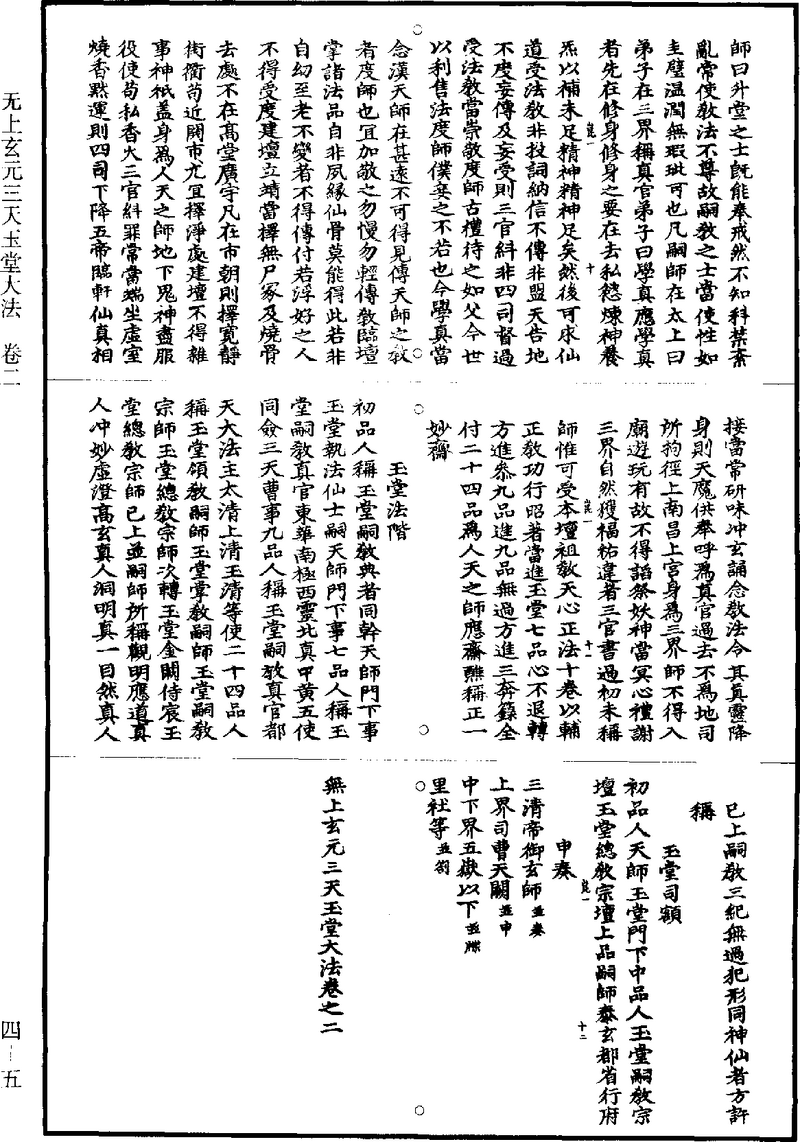 无上玄元三天玉堂大法　卷二
師曰升堂之士旣能奉戒然不知科禁紊
亂常使敎法不尊故嗣敎之士當使性如
圭璧温潤無瑕玼可也凡嗣師在太上曰
弟子在三界稱真官弟子曰學真應學真
者先在修身修身之要在去私慾煉神養
炁以補未足精神精神足矣然後可求仙
道受法敎非投詞納信不傳非盟天告地
不度妄傳及妄受則三官糾非四司督過
受法敎當崇敬度師古禮待之如父今世
以利售法度師僕妾之不若也今學真當
念漢天師在甚遠不可得見傳天師之敎
者度師也宜加敬之勿慢勿輕傳敎臨壇
掌諸法品自非夙緣仙骨莫能得此若非
自幼至老不變者不得傳付若浮好之人
不得受度建壇立靖當擇無尸冢及燒骨
去處不在髙堂廣宇凡在市朝則擇寬靜
街衢苟近閙市尤宜擇淨處建壇不得雜
事神祇蓋身爲人天之師地下鬼神盡服
役使苟私香火三官糾罪常當端坐虛室
燒香黙運則四司下降五帝臨軒仙真相
接當常研味冲玄誦念敎法令其真靈降
身則天魔供奉呼爲真官過去不爲地司
所拘徑上南昌上宫身爲三界師不得入
廟遊玩有故不得謟祭妖神當冥心禮謝
三界自然獲福祐違者三官書過初未稱
師惟可受本壇祖敎天心正法十卷以輔
正敎功行昭著當進玉堂七品心不退轉
方進叅九品進九品無過方進三奔籙全
付二十四品爲人天之師應齋醮稱正一
妙齋
玉堂法階
初品人稱玉堂嗣敎典者同幹天師門下事
玉堂執法仙士嗣天師門下事七品人稱玉
堂嗣敎真官東華南極西靈北真中黄五使
同僉三天曹事九品人稱玉堂嗣敎真官都
天大法主太清上清玉清等使二十四品人
稱玉堂領敎嗣師玉堂掌敎嗣師玉堂嗣敎
宗師玉堂總敎宗師次轉玉堂金闕侍宸玉
堂總敎宗師已上並嗣師所稱觀明應道真
人冲妙虛澄髙玄真人洞明真一自然真人
已上嗣敎三紀無過犯形同神仙者方許
稱
玉堂司額
初品人天師玉堂門下中品人玉堂嗣敎宗
壇玉堂總敎宗壇上品嗣師泰玄都省行府
申奏
三清帝御玄師並奏
上界司曹天闕並申
中下界五嶽以下並牒
里社等並劄
無上玄元三天玉堂大法卷之二
十
十一
十二
四—五